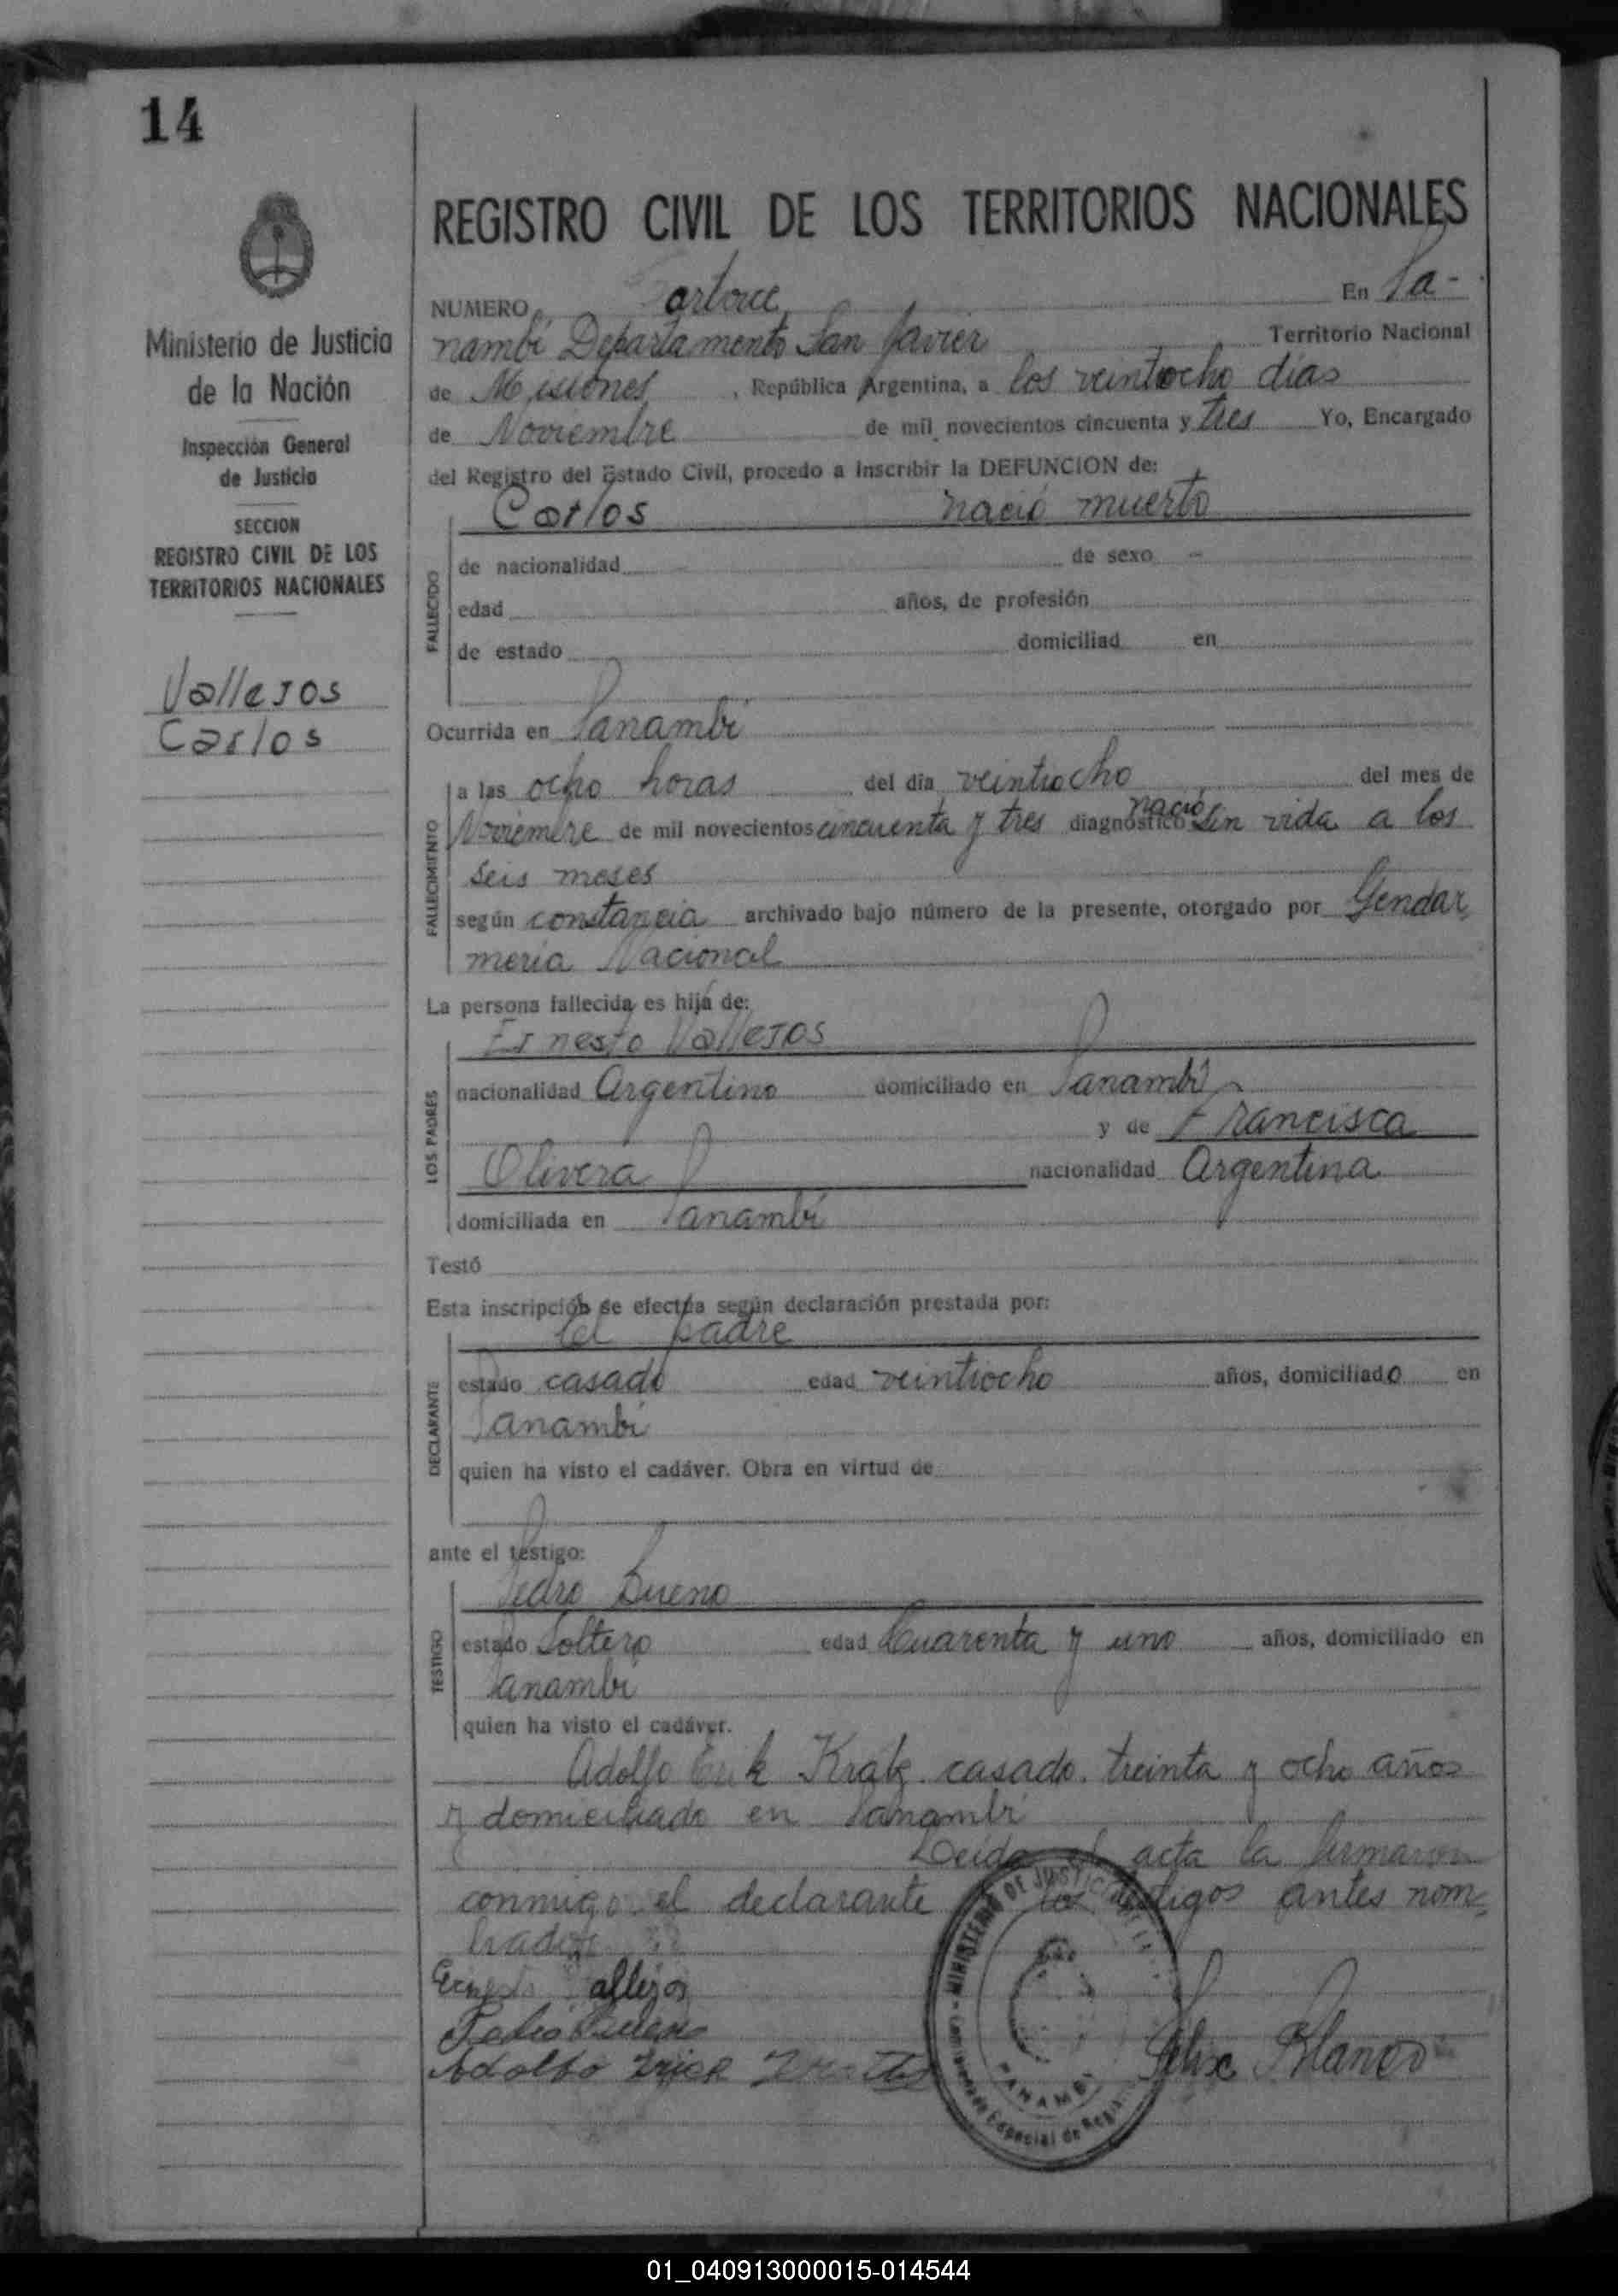 14
REGISTRO CIVIL DE LOS TERRITORIOS NACIONALES
Ministerio de Justicia
de la Nación
Inspección General
de Justicia
SECCION
REGISTRO CIVIL DE LOS
TERRITORIOS NACIONALES
Vallejos
Carlos
NUMERO En Pa-
nambí Departamento San Javier Territorio Nacional
de Misiones, República Argentina, a los veintiocho días
de Noviembre de mil novecientos cincuenta y tres Yo, Encargado
del Registro del Estado Civil, procedo a inscribir la DEFUNCION de:
Carlos nació muerto
FALLECIDO
de nacionalidad de sexo -
edad años, de profesión
de estado domiciliad en
Ocurrida en Panambí
FALLECIMIENTO
a las ocho horas del día veintiocho del mes de
Noviembre de mil novecientos cincuenta y tres diagnóstico nació sin vida a los
seis meses
según constancia archivado bajo número de la presente, otorgado por Gendar
mería Nacional
La persona fallecida es hija de:
LOS PADRES
Ernesto Vallejos
nacionalidad Argentino domiciliado en Panambí
y de Francisca
Olivera nacionalidad Argentina
domiciliada en Panambí
Testó
Esta inscripción se efectúa según declaración prestada por:
DECLARANTE
el padre
estado casado edad veintiocho años, domiciliado en
Panambí
quien ha visto el cadáver. Obra en virtud de
ante el testigo:
TESTIGO
Pedro Bueno
estado Soltero edad Cuarenta y uno años, domiciliado en
Panambí
quien ha visto el cadáver.
Adolfo Erik casado. treinta y ocho años
y domiciliado en Panambí
Leída el acta la firmaron
conmigo el declarante y los testigos antes nom-
brados
Ernesto Vallejos
Adolfo Erick
Felix Blanco
MINISTERIO DE JUSTICIA DE LA
PANAMBI
Especial de
01_040913000015-014544